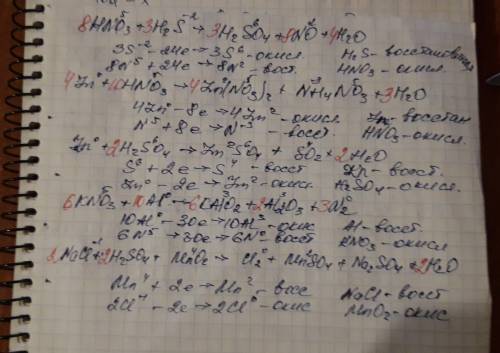 8HNO₃ + 3H₂S⁻² → 3H₂SO₄ + 8NO + 4H₂O
3S⁻² - 24e → 3S⁶ - окисл. H₂S - восстановитель
8N⁵ + 24e → 8N² - вост. HNO₃ - окисл.
4Zn⁰ + 10HNO₃ → 4Zn(NO₃)₂ + NH₄NO₃ + 3H₂O
4Zn⁰ - 8e → 4Zn² - окисл. Zn - восстан
N⁵ + 8e → N⁻³ - восст. HNO₃ - окисл.
Zn⁰ + 2H₂SO₄ → Zn²SO₄ + SO₂ + 2H₂O
S⁶ + 2e → S⁴ - восст Zn - восст.
Zn⁰ - 2e → Zn² - окисл. H₂SO₄ - окисл.
6KNO₃ + 10Al⁰ → 6KAlO₂ + 2Al₂O₃ + 3N₂⁰
10Al⁰ - 30e → 10Al³ - окис Al - восст.
6N⁵ → 30e → 6N⁰ - восст KNO₃ - окисл.
2NaCl⁻¹ + 2H₂SO₄ + MnO₂ → Cl₂⁰ + MnSO₄ + Na₂SO₄ + 2H₂O
Mn⁴ + 2e → Mn² - восс NaCl - восст
2Cl⁻¹ - 2e → 2Cl⁰ - окис MnO₂ - окис